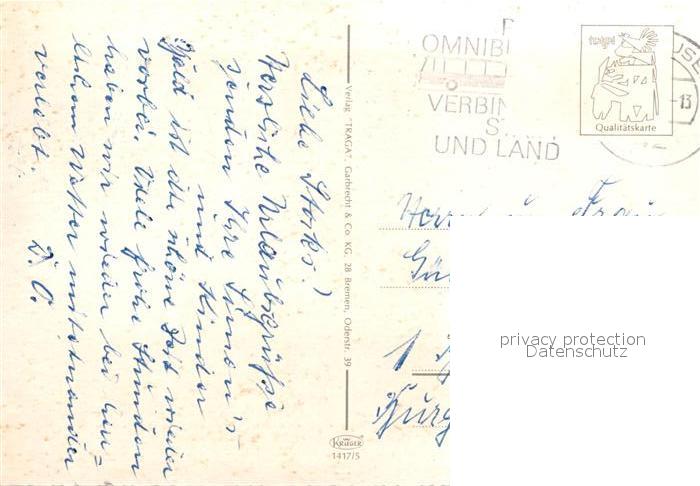 Liebe Stocks!)
Herzliche Urlaubsgrüße
senden Ihre Simon's
und Kinder
Bald ist die schöne Zeit wieder
vorbei. Viele frohe Stunden
haben wir wieder bei herr=
lichem Wetter miteinander
verlebt.
D. O.
Verlag "TRAGA", Garbrecht & Co. KG, 28 Bremen, Oderstr. 39
KRÜGER
1417/5
OMNIB
VERBIN
UND LAND
Qualitätskarte
13
Frau
privacy protection
Datenschutz